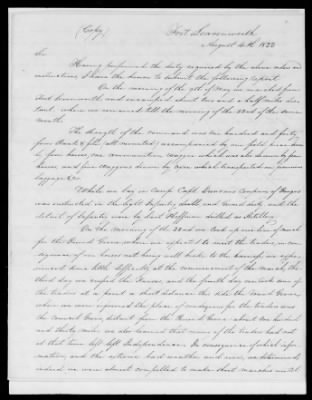 (Copy)
Fort Leavenworth
August 4th 1833
Sir
Having performed the duty required by the above orders and
instructions, I have the honor to submit the following report.
On the morning of the 9th of May we marched from
Fort Leavenworth and encamped about two and a half miles dis-
tant, where we remained till the morning of the 22nd of the same
month.
The strength of the command was one hundred and forty
four Rank & file, (all mounted) accompanied by one field piece drawn
by four horses, one ammunition waggon which was also drawn by four
horses, and five Waggons drawn by oxen which transported our provisions
baggage &c.
While we lay in Camp Capt. Duncans Company of Rangers
was instructed in the light Infantry drill, and Guard duty and the
detail of Infantry were by Lieut Hoffman drilled as Artillery.
On the morning of the 22nd we took up our line of march
for the Round Grove where we expected to meet the traders, in con-
sequence of our horses not being well broke to the harness, we exper-
ienced some little difficulty at the commencement of the march, the
third day we crossed the Kansas, and the fourth day overtook one of
the traders at a point a short distance this side the round Grove,
when we were informed the place of rendezvous for the traders was
the Council Grove, distant from the Round Grove about one hundred
and thirty miles we also learned that some of the traders had not
at that time left Independence. In consequence of which infor-
mation, and the extreme bad weather and roads, we determined
indeed we were almost compelled to make short marches until